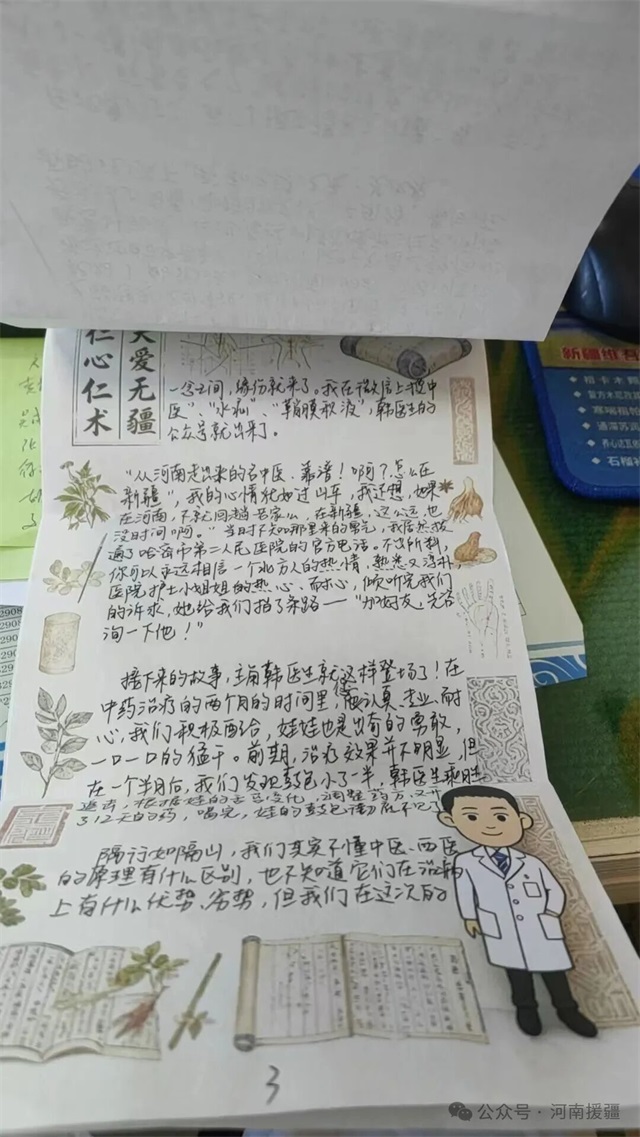 大爱无疆
仁心仁术
一念之间，缘份就来了。我在微信上搜"中
医"、"小儿"、"鞘膜积液"，韩医生的
公众号就出来了。
"从河南走出来的名中医、靠谱！啊？怎么在
新疆"，我的心情犹如过山车，我还想，如果
在河南，不就回趟老家么，在新疆，这么远，也
没时间啊。"当时不知哪里来的勇气，我居然拨
通了哈密市第二人民医院的官方电话。不出所料，
你可以永远相信一个北方人的热情、熟悉又淳朴，
医院护士小姐姐的热心、耐心，倾听完我们
的诉求，她给我们指了条路——"加好友，先咨
询一下他！"
接下来的故事，主角韩医生就这样登场了！在
中药治疗的两个月的时间里，很认真、专业、耐
心，我们积极配合，娃娃也是出奇的勇敢，
一口一口的猛干。前期，治疗效果并不明显，但
在一个半月后，我们发现鼓包小了一半，韩医生乘胜
追击，根据娃的舌苔变化，调整药方，又开
了12天的药，喝完，娃的鼓包
隔行如隔山，我们其实不懂中医、西医
的原理有什么区别，也不知道它们在治病
上有什么优势、劣势，但我们在这次的
3
新疆维
公众号·河南援疆